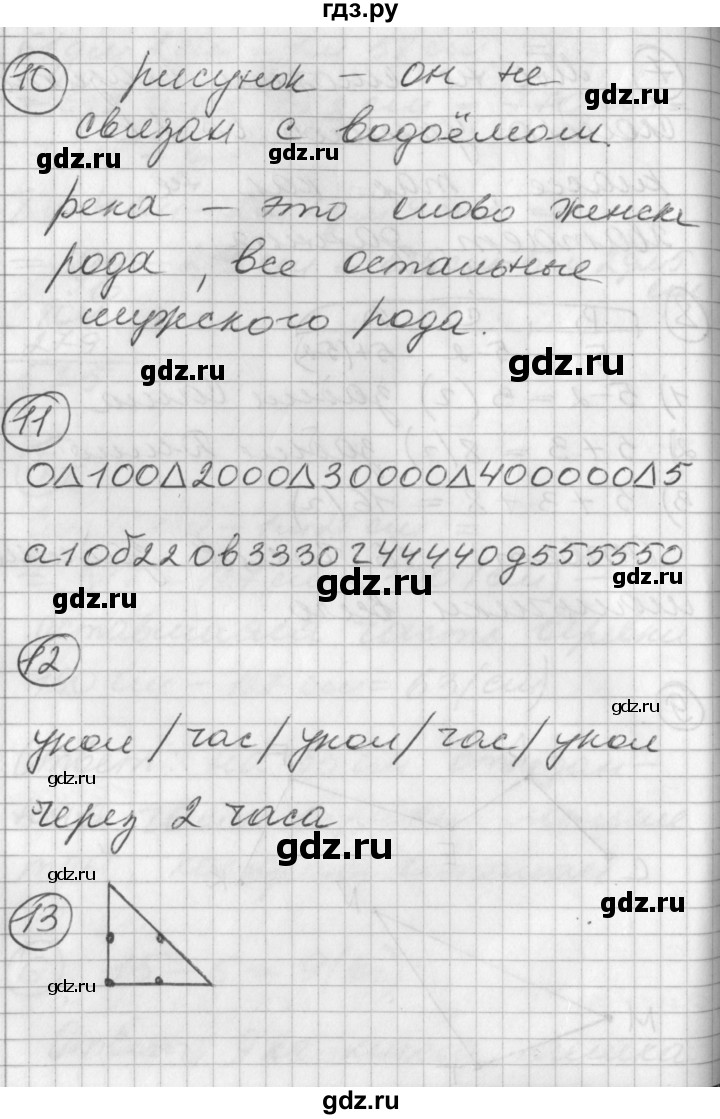 гдз.ру
10 рисунок – он не
gdz.ru
связан с водоёмом.
gdz.ru gdz.ru
река – это слово женск
рода, все остальные
мужского рода.
gdz.ru gdz.ru
11
0Δ100Δ2000Δ30000Δ400000Δ5
а10б220в3330г44440д555550
gdz.ru gdz.ru gdz.ru
12
gdz.ru
укол / час / укол / час / укол
gdz.ru
через 2 часа
gdz.ru
gdz.ru
13
gdz.ru
gdz.ru
gdz.ru